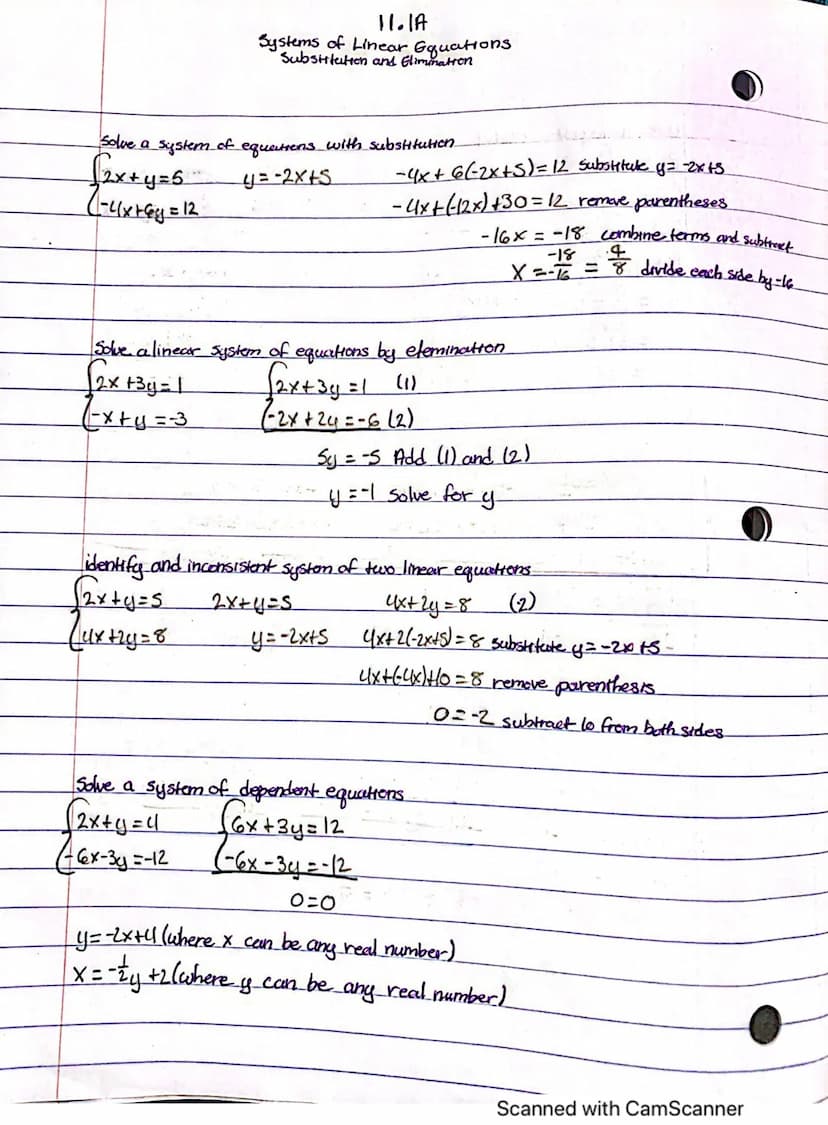 11.1A
Systems of Linear Equations
Substitution and Elimination
Solve a system of equations with substitution
2x+y=5 y=-2x+5 -4x+6(-2x+5)=12 substitute y=-2x+5
-4x+6y=12 -4x+(-12x)+30=12 remove parentheses
-16x = -18 combine terms and subtract
x = -18/-16 = 9/8 divide each side by -16
Solve a linear system of equations by elemination
2x+3y=1 2x+3y=1 (1)
-x+y=-3 -2x+2y=-6 (2)
5y=-5 Add (1) and (2)
y=-1 solve for y
identify and inconsistent system of two linear equations
2x+y=5 2x+y=5 4x+2y=8 (2)
4x+2y=8 y=-2x+5 4x+2(-2x+5)=8 substitute y=-2x+5
4x+(-4x)+10=8 remove parenthesis
0=-2 subtract 10 from both sides
Solve a system of dependent equations
2x+y=4 6x+3y=12
-6x-3y=-12 -6x-3y=-12
0=0
y=-2x+4 (where x can be any real number)
x=-1/2y+2 (where y can be any real number)
Scanned with CamScanner